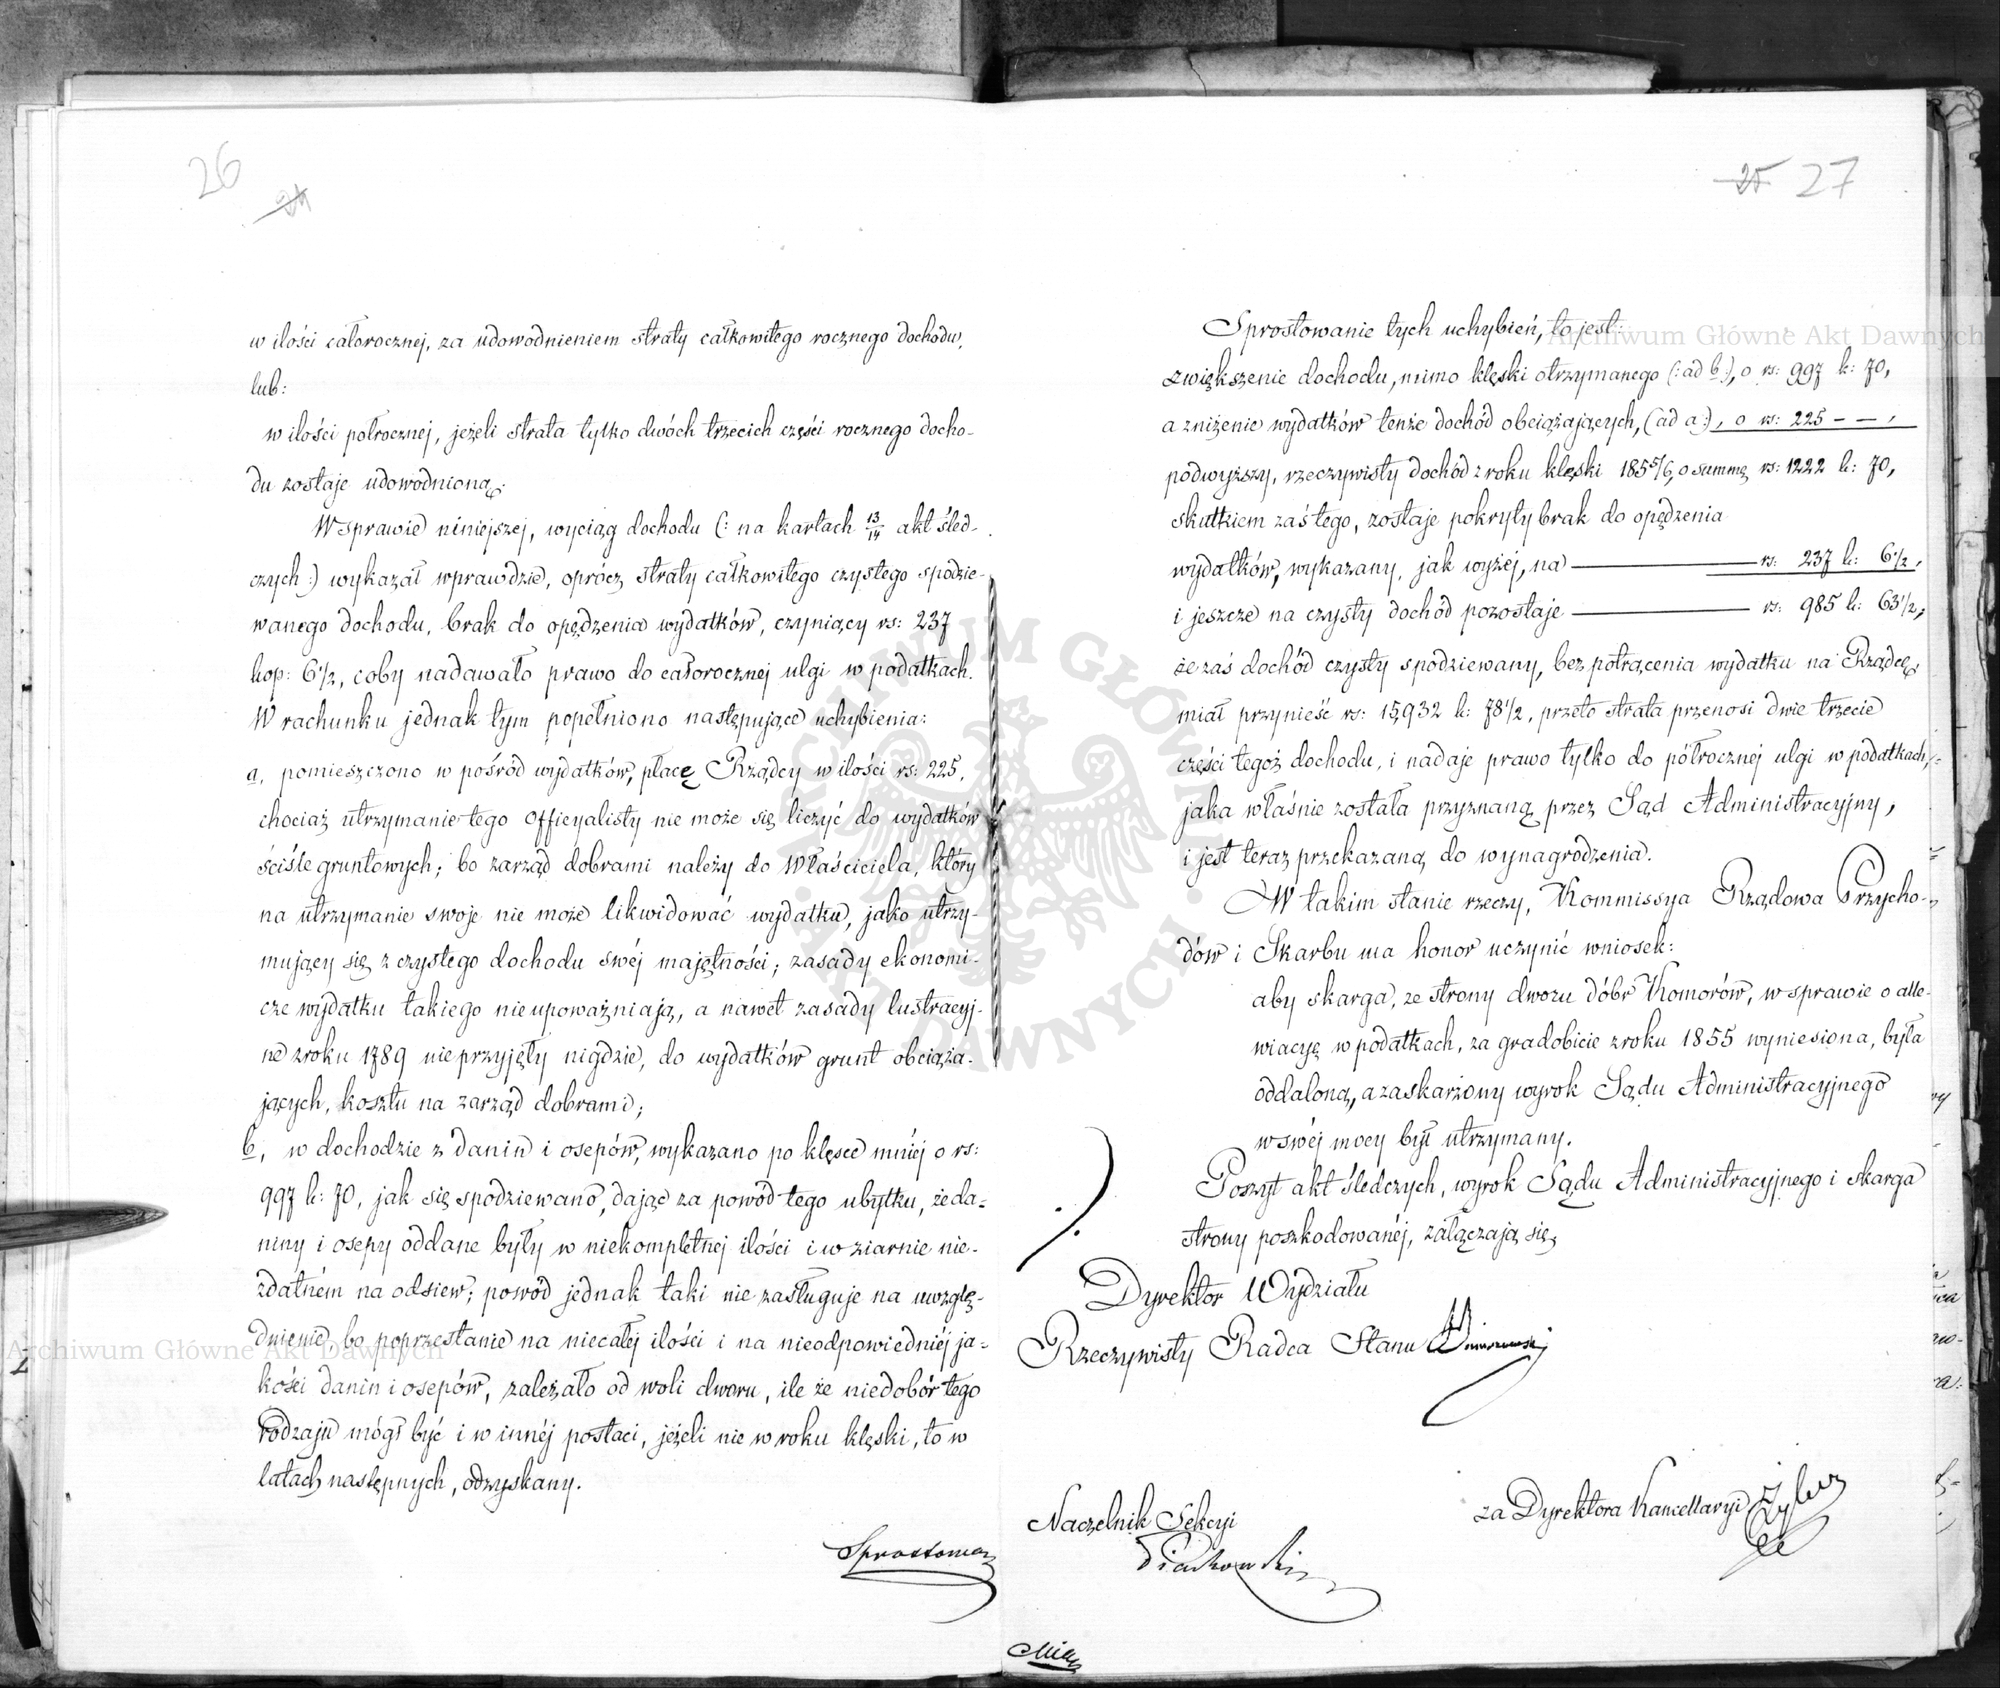 26
24
w ilości całorocznej, za udowodnieniem straty całkowitego rocznego dochodu,
lub:
w ilości półrocznej, jeżeli strata tylko dwóch trzecich części rocznego docho-
du zostaje udowodnioną.
W sprawie niniejszej, wyciąg dochodu (: na kartach 13/14 akt śled-
czych :) wykazał wprawdzie, oprócz straty całkowitego czystego spodzie-
wanego dochodu, brak do opędzenia wydatków, czyniący rs: 237
kop: 6 1/2, coby nadawało prawo do całorocznej ulgi w podatkach.
W rachunku jednak tym popełniono następujące uchybienia:
a, pomieszczono w pośród wydatków, płacę Rządcy w ilości rs: 225,
chociaż utrzymanie tego Officyalisty nie może się liczyć do wydatków
ściśle gruntowych; bo zarząd dobrami należy do Właściciela, który
na utrzymanie swoje nie może likwidować wydatku, jako utrzy-
mujący się z czystego dochodu swéj majętności; zasady ekonomi-
cze wydatku takiego nieupoważniają, a nawet zasady lustracyj-
ne z roku 1789 nieprzyjęły nigdzie, do wydatków grunt obciąża-
jących, kosztu na zarząd dobrami;
b, w dochodzie z danin i osepów, wykazano po klęsce mniéj o rs:
997 k: 70, jak się spodziewano, dając za powód tego ubytku, że da-
niny i osepy oddane były w niekompletnej ilości i w ziarnie nie-
zdatném na odsiew; powód jednak taki nie zasługuje na uwzglę-
dnienie, bo poprzestanie na niecałéj ilości i na nieodpowiedniéj ja-
kości danin i osepów, zależało od woli dworu, ile że niedobór tego
rodzaju mógł być i w innéj postaci, jeżeli nie w roku klęski, to w
latach następnych, odzyskany.
Sprostowan
25 27
Sprostowanie tych uchybień, to jest:
zwiększenie dochodu, mimo klęski otrzymanego (: ad b :), o rs: 997 k: 70,
a zniżenie wydatków tenże dochód obciążających, (ad a :), o rs: 225 – – ,
podwyższy, rzeczywisty dochód z roku klęski 185 5/6, o summę rs: 1222 k: 70,
skutkiem zaś tego, zostaje pokryty brak do opędzenia
wydatków, wykazany, jak wyżéj, na ——— rs: 237 k: 6 1/2,
i jeszcze na czysty dochód pozostaje ——— rs: 985 k: 63 1/2,
że zaś dochód czysty spodziewany, bez potrącenia wydatku na Rządcę,
miał przynieść rs: 15,932 k: 78 1/2, przeto strata przenosi dwie trzecie
części tegoż dochodu, i nadaje prawo tylko do półrocznej ulgi w podatkach,
jaka właśnie została przyznaną przez Sąd Administracyjny,
i jest teraz przekazaną do wynagrodzenia.
W takim stanie rzeczy, Kommissya Rządowa Przycho-
dów i Skarbu ma honor uczynić wniosek:
aby skarga, ze strony dworu dóbr Komorów, w sprawie o alle-
wiacyę w podatkach, za gradobicie z roku 1855 wyniesiona, była
oddaloną, a zaskarżony wyrok Sądu Administracyjnego
w swéj mocy był utrzymany.
Poszyt akt śledczych, wyrok Sądu Administracyjnego i skarga
strony poszkodowanéj, załączają się.
Dyrektor Wydziału
Rzeczywisty Radca Stanu
Naczelnik Sekcyi
Piątkowski
za Dyrektora Kancellaryi
Archiwum Główne Akt Dawnych
Archiwum Główne Akt Dawnych
ARCHIWUM GŁÓWNE AKT DAWNYCH